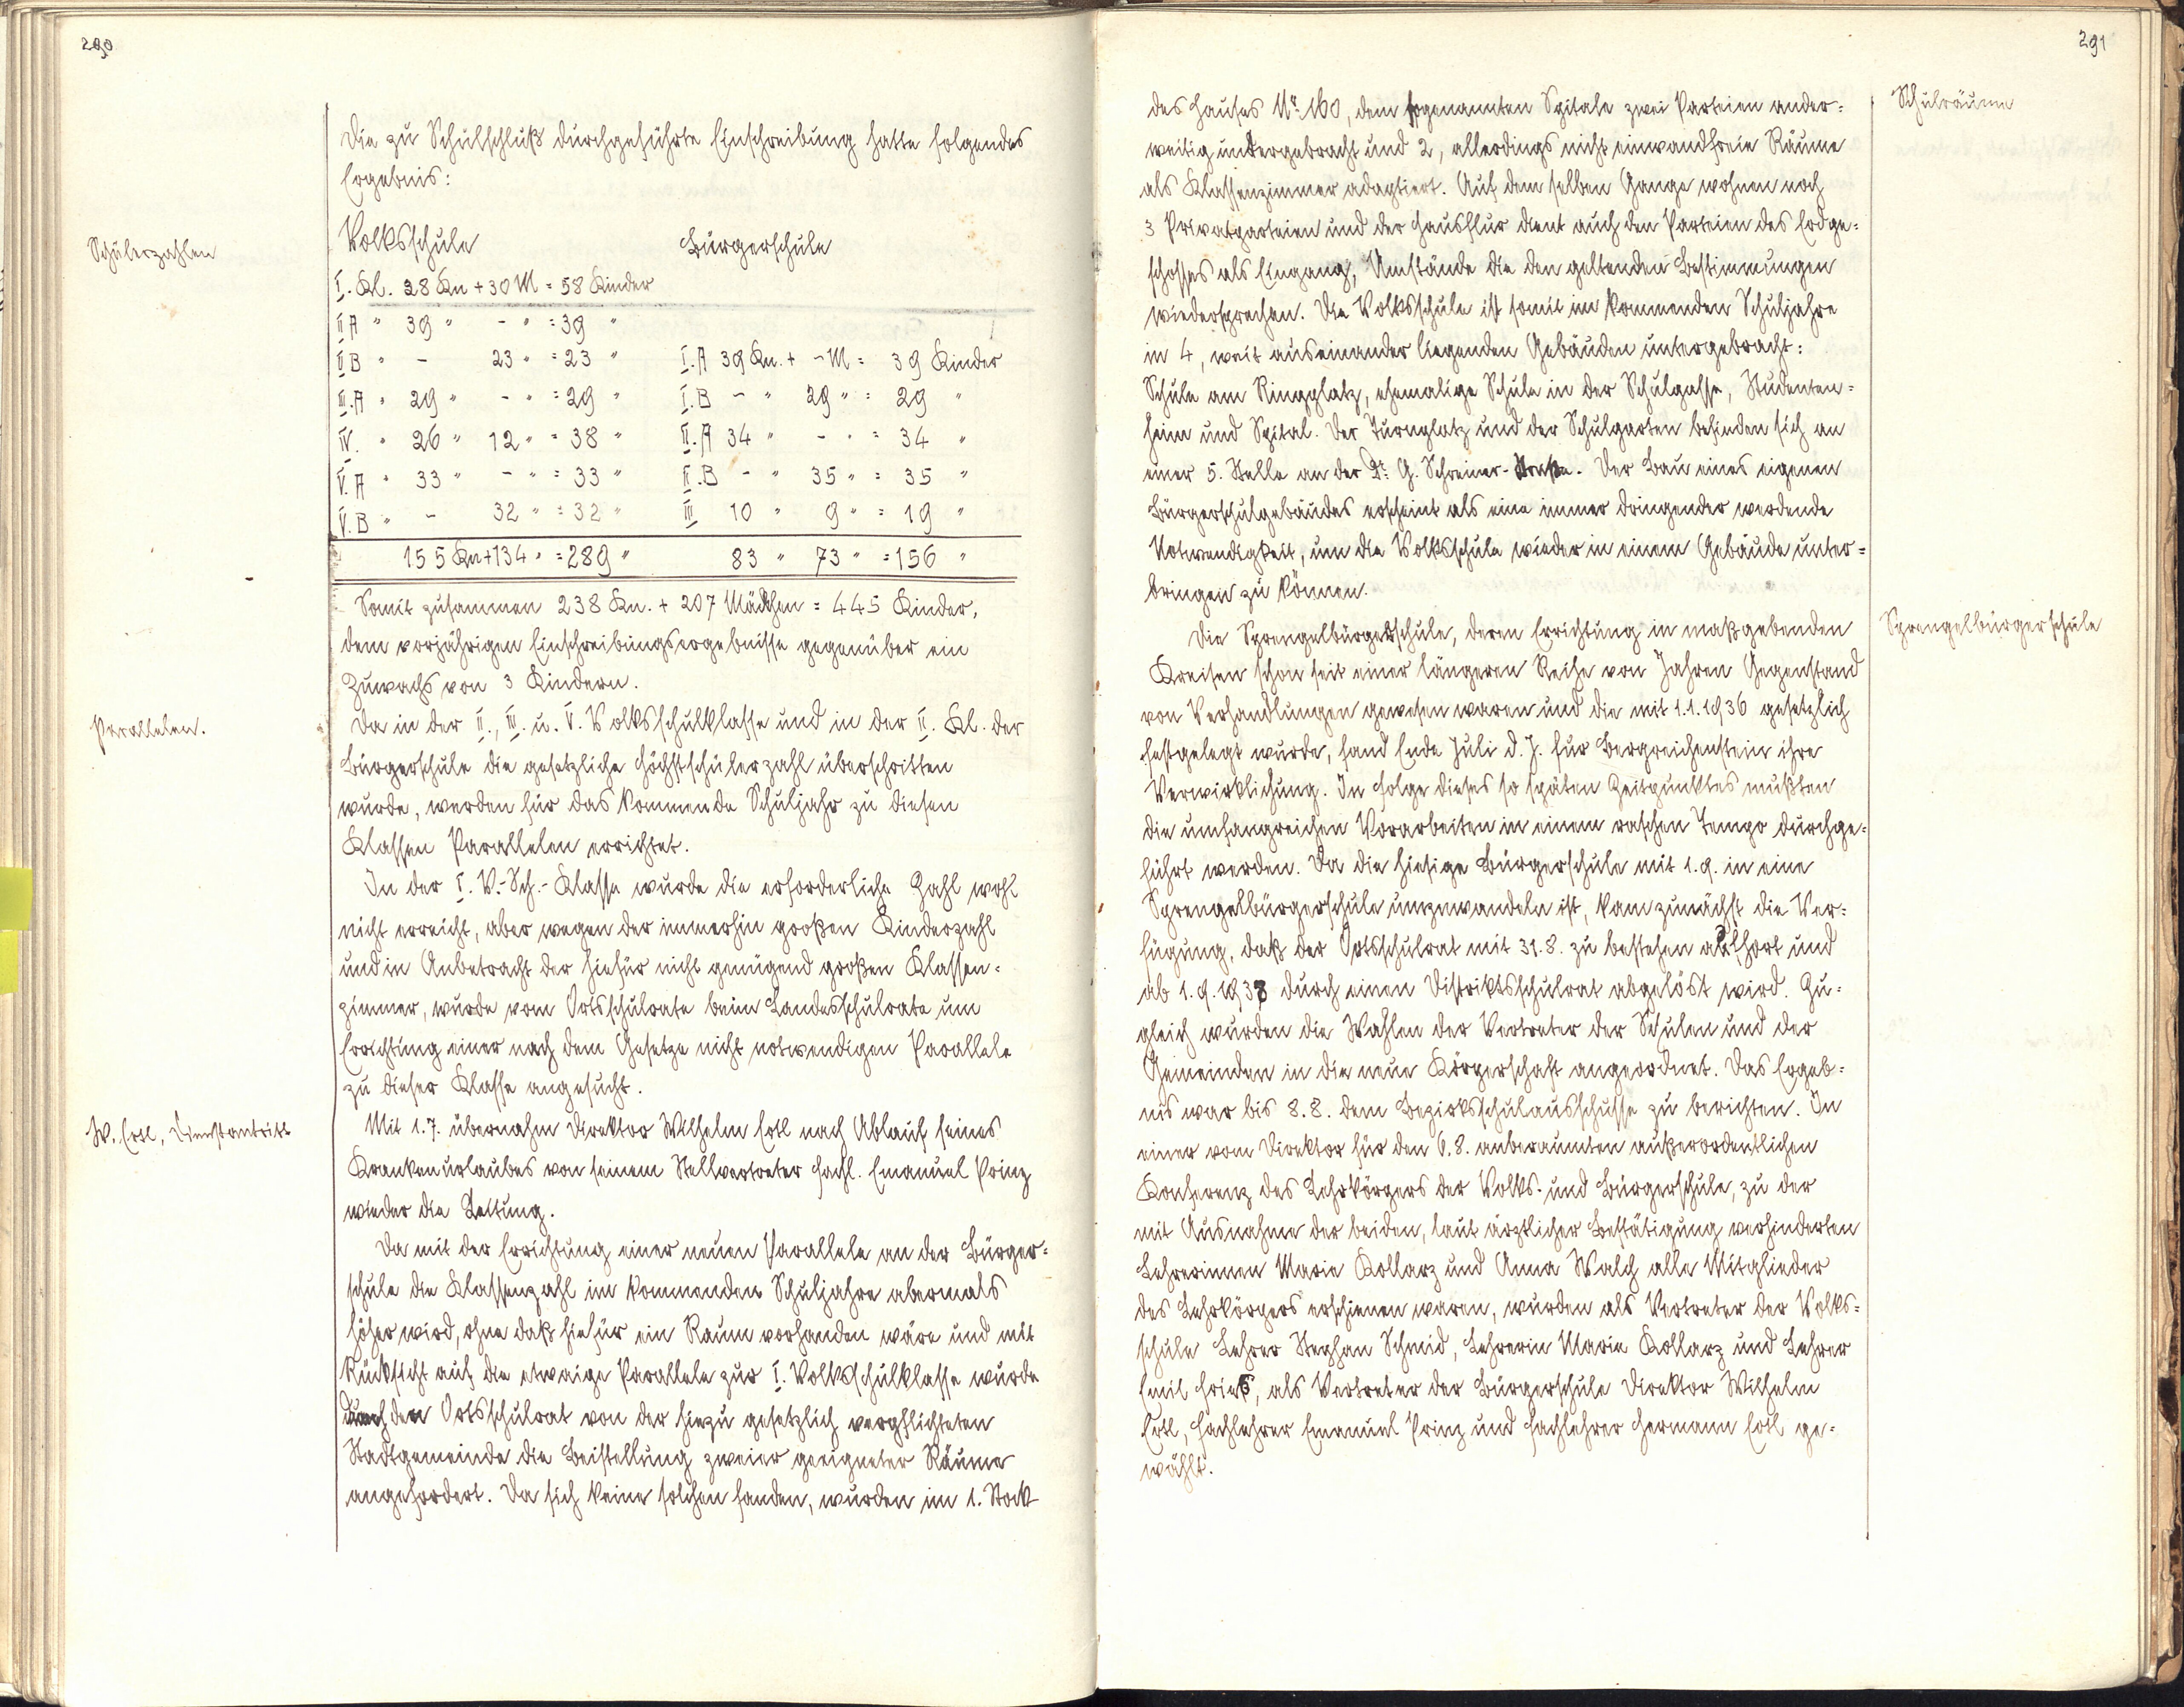 290
Die zu Schulschluß durchgeführte Einschreibung hatte folgendes
Ergebnis:
Schülerzahlen
Volksschule Bürgerschule
I. Kl. 28 Kn + 30 M = 58 Kinder
II A " 39 " - " = 39 "
II B " - 23 " = 23 " I. A 39 Kn. + - M = 39 Kinder
III. A " 29 " - " = 29 " I. B - " 29 " = 29 "
IV. " 26 " 12 " = 38 " II. A 34 " - " = 34 "
V. A " 33 " - " = 33 " II. B - " 35 " = 35 "
V. B " - 32 " = 32 " III 10 " 9 " = 19 "
155 Kn + 134 " = 289 " 83 " 73 " = 156 "
Somit zusammen 238 Kn. + 207 Mädchen = 445 Kinder,
dem vorjährigen Einschreibungsergebnisse gegenüber ein
Zuwachs von 3 Kindern.
Parallelen.
Da in der II., III. u. V. Volksschulklasse und in der II. Kl. der
Bürgerschule die gesetzliche Höchstschülerzahl überschritten
wurde, werden für das kommende Schuljahr zu diesen
Klassen Parallelen errichtet.
In der I. V.-Sch.-Klasse wurde die erforderliche Zahl wohl
nicht erreicht, aber wegen der immerhin großen Kinderzahl
und in Anbetracht der hiefür nicht genügend großen Klassen=
zimmer, wurde vom Ortsschulrate beim Landesschulrate um
Errichtung einer nach dem Gesetze nicht notwendigen Parallele
zu dieser Klasse angesucht.
W. Ertl, Dienstantritt
Mit 1.7. übernahm Direktor Wilhelm Ertl nach Ablauf seines
Krankenurlaubes von seinem Stellvertreter Fachl. Emanuel Prinz
wieder die Leitung.
Da mit der Errichtung einer neuen Parallele an der Bürger=
schule die Klassenzahl im kommenden Schuljahre abermals
höher wird, ohne daß hiefür ein Raum vorhanden wäre und mit
Rücksicht auf die etwaige Parallele zur I. Volksschulklasse wurde
durch den Ortsschulrat von der hiezu gesetzlich verpflichteten
Stadtgemeinde die Beistellung zweier geeigneter Räume
angefordert. Da sich keine solchen fanden, wurden im 1. Stock
291
Schulräume
des Hauses Nr. 160, dem sogenannten Spitale zwei Parteien ander=
weitig undergebracht und 2, allerdings nicht einwandfreie Räume
als Klassenzimmer adaptiert. Auf dem selben Gange wohnen noch
3 Privatparteien und der Hausflur dient auch den Parteien des Erdge=
schosses als Eingang, Umstände die den geltenden Bestimmungen
wiedersprechen. Die Volksschule ist somit im kommenden Schuljahre
in 4, weit auseinander liegenden Gebäuden untergebracht:
Schule am Ringplatz, ehemalige Schule in der Schulgasse, Studenten=
heim und Spital. Der Turnplatz und der Schulgarten befinden sich an
einer 5. Stelle an der Dr. G. Schreiner-Straße. Der Bau eines eigenen
Bürgerschulgebäudes erscheint als eine immer dringender werdende
Notwendigkeit, um die Volksschule wieder in einem Gebäude unter=
bringen zu können.
Sprengelbürgerschule
Die Sprengelbürgerschule, deren Errichtung in maßgebenden
Kreisen schon seit einer längeren Reihe von Jahren Gegenstand
von Verhandlungen gewesen waren und die mit 1.1.1936 gesetzlich
festgelegt wurde, fand Ende Juli d. J. für Bergreichenstein ihre
Verwirklichung. In folge dieses so späten Zeitpunktes mußten
die umfangreichen Vorarbeiten in einem raschen Tempo durchge=
führt werden. Da die hiesige Bürgerschule mit 1.9. in eine
Sprengelbürgerschule umzuwandeln ist, kam zunächst die Ver=
fügung, daß der Ortsschulrat mit 31.8. zu bestehen aufhört und
ab 1.9.1937 durch einen Distriktsschulrat abgelöst wird. Zu=
gleich wurden die Wahlen der Vertreter der Schulen und der
Gemeinden in die neue Körperschaft angeordnet. Das Ergeb=
nis war bis 8.8. dem Bezirksschulausschusse zu berichten. In
einer vom Direktor für den 6.8. anberaumten außerordentlichen
Konferenz des Lehrkörpers der Volks- und Bürgerschule, zu der
mit Ausnahme der beiden, laut ärztlicher Bestätigung verhinderten
Lehrerinnen Marie Kollarz und Anna Walch alle Mitglieder
des Lehrkörpers erschienen waren, wurden als Vertreter der Volks=
schule Lehrer Stephan Schmid, Lehrerin Marie Kollarz und Lehrer
Emil Frieß, als Vertreter der Bürgerschule Direktor Wilhelm
Ertl, Fachlehrer Emanuel Prinz und Fachlehrer Hermann Ertl ge=
wählt.